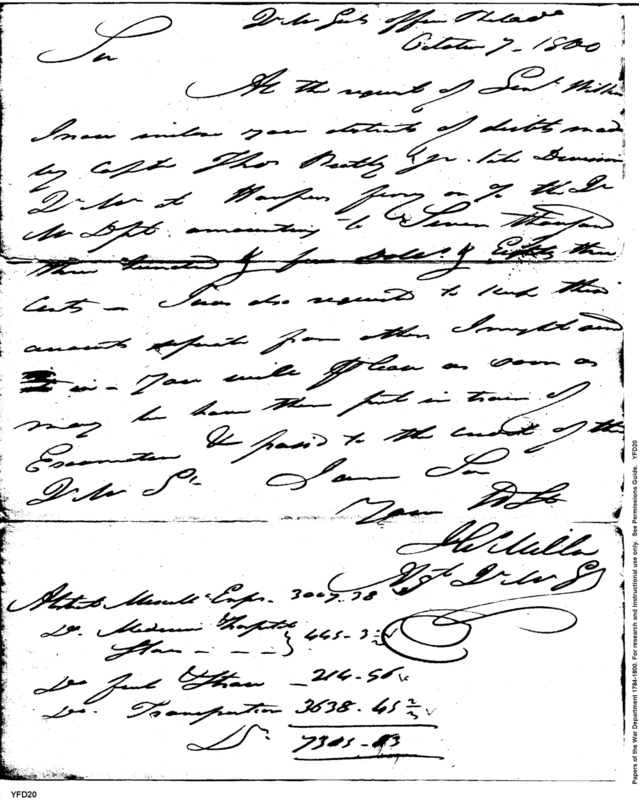 Qr Mr Genls Office Philada
October 7. 1800
Sir
At the request of Genl Wilkin
I now inclose you abstracts of debts made
by Captn Thos Beatty Jr. late Division
Qr Mr at Harpers ferry on % the Qr
Mr Dept. amounting to Seven Thousand
three hundred & five Dolls & Eighty three
Cents - I was also request to keep this
amounts seperate from others I might send
in - You will please as soon as
may be have them put in train of
Examination & passd to the credit of the
Qr Mr Gl. I am Sir
Your Ob St
J Wilkins
Qr Mr Gl
Abstract Miscells Exps. 3007.38
Do. Medicine & Hospital
Stores - - - } 445-3
Do fuel & Straw - 214-56
Do. Transportation 3638.45 2/3
Ds. 7305-83
YFD20
Papers of the War Department 1784-1800. For research and instructional use only. See Permissions Guide. YFD20